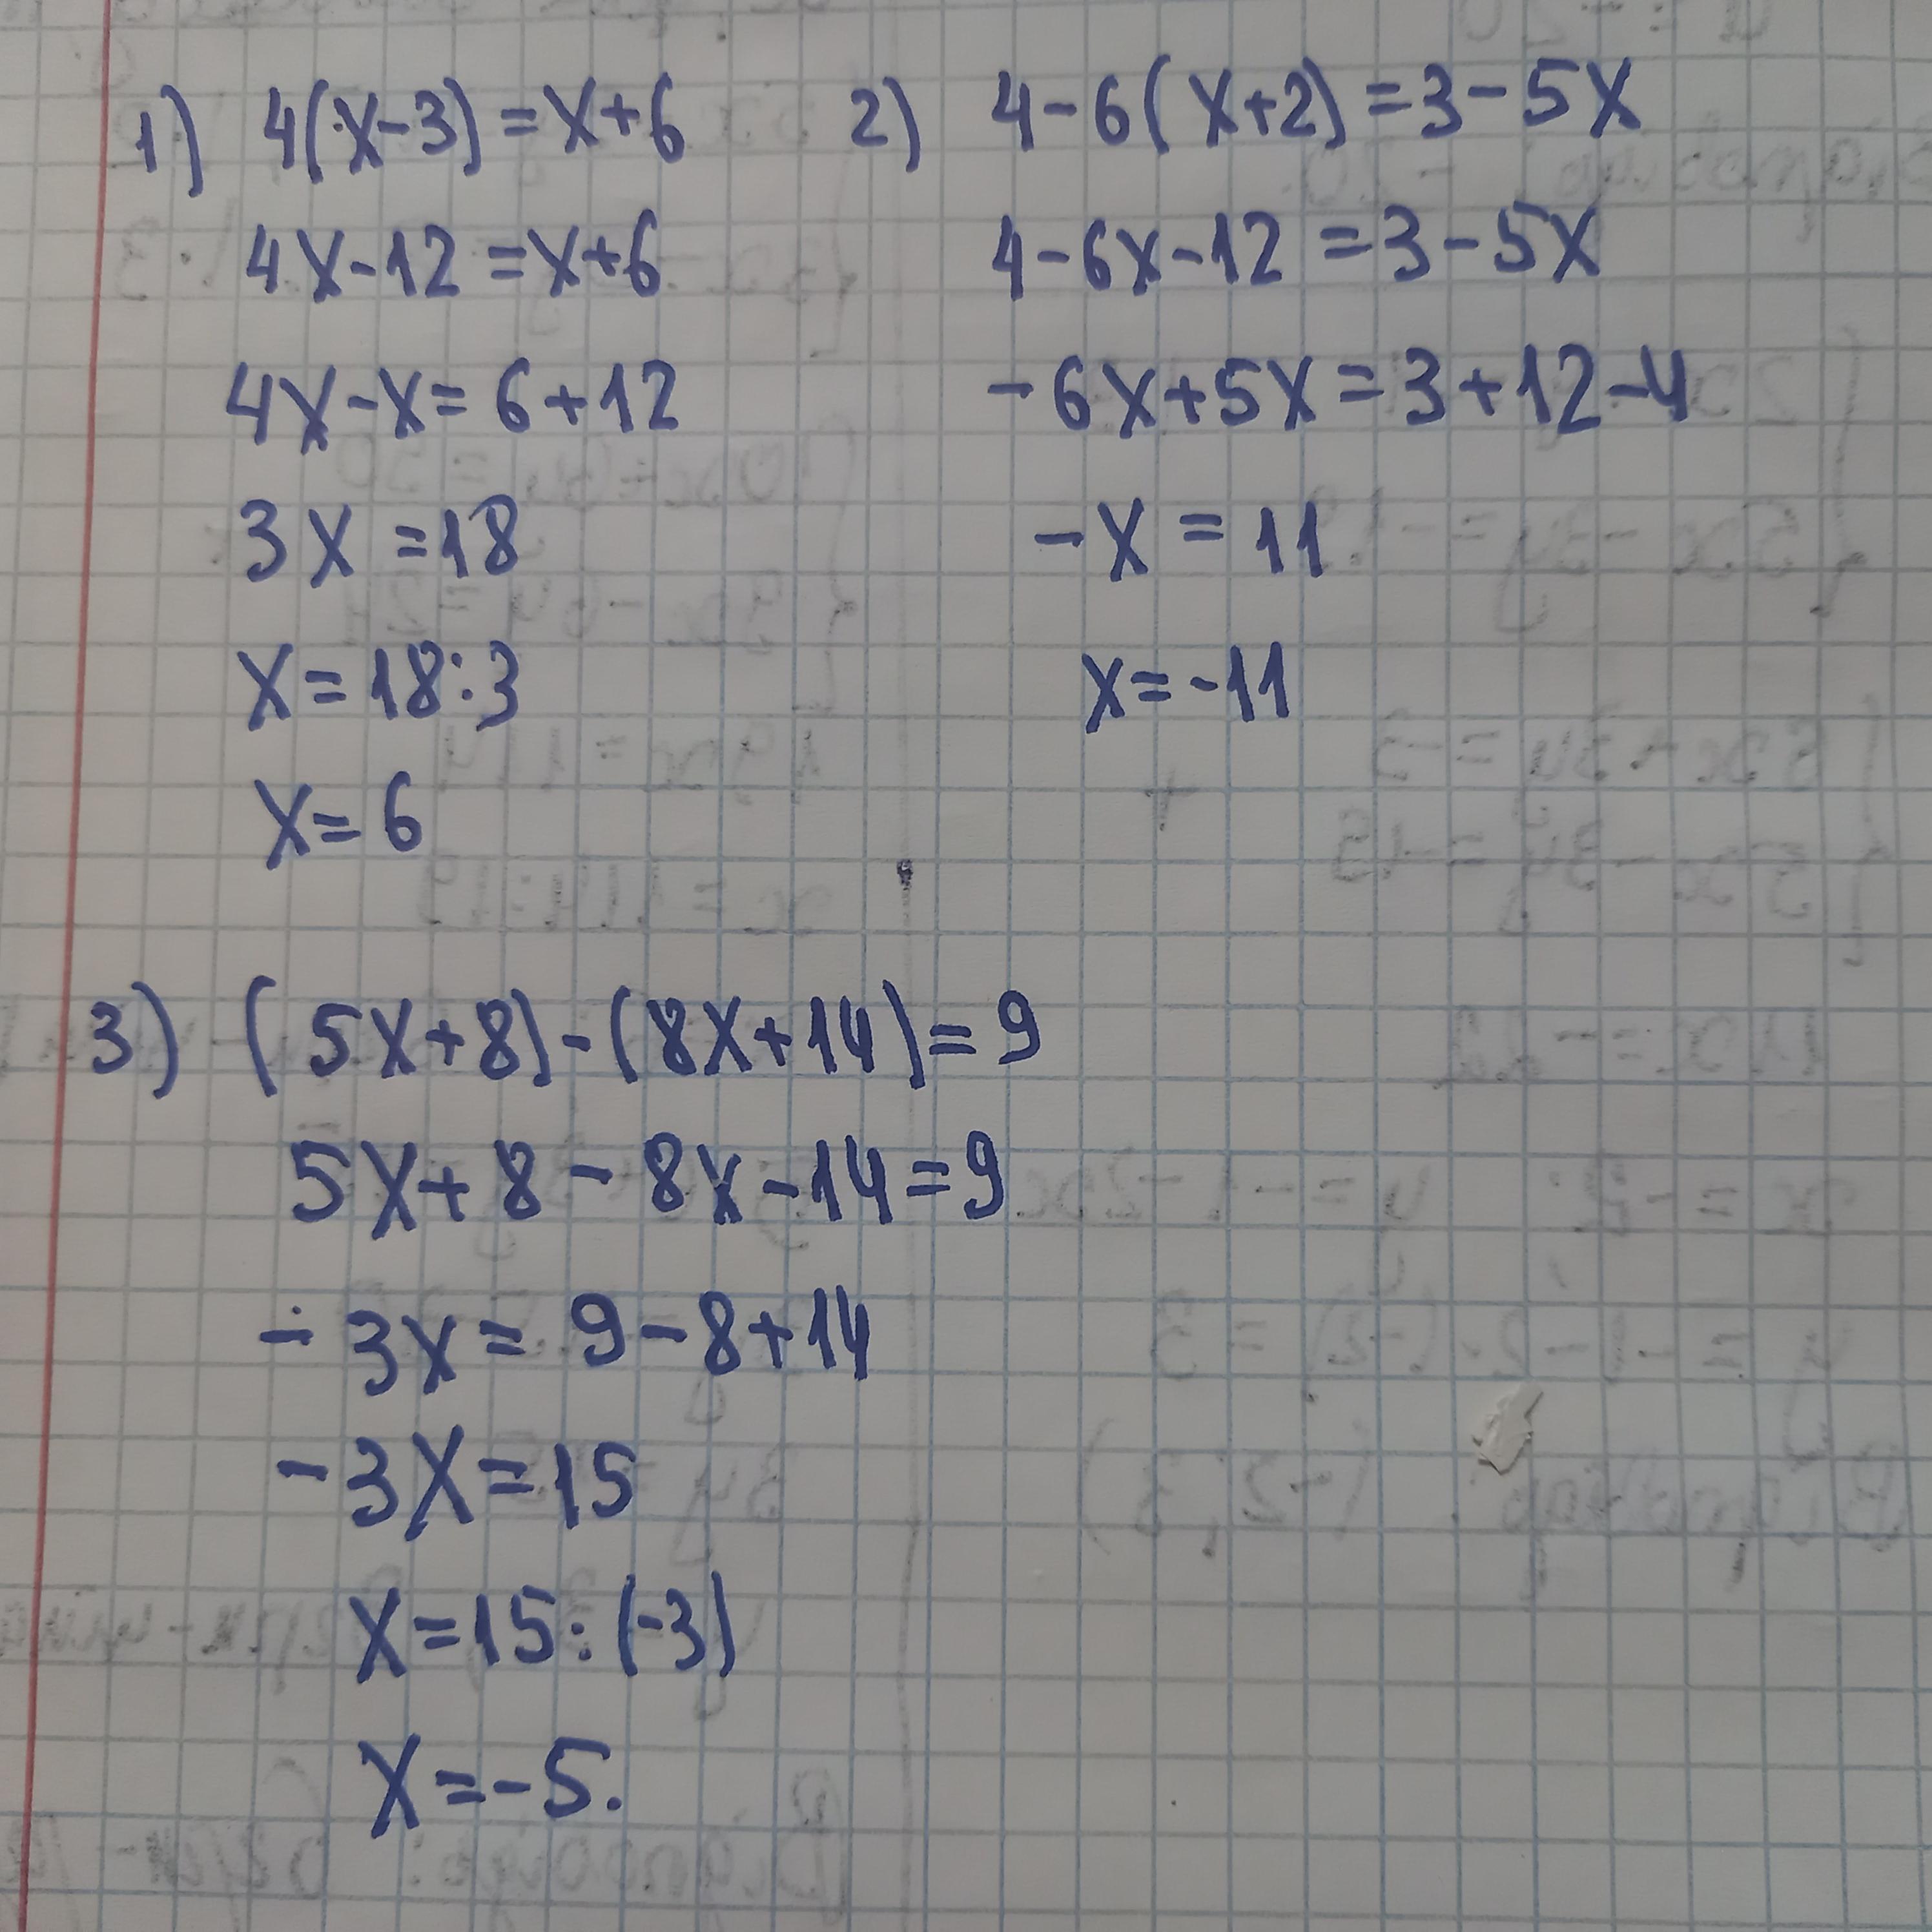 1) 4(x-3)=x+6
4x-12=x+6
4x-x=6+12
3x=18
x=18:3
x=6
2) 4-6(x+2)=3-5x
4-6x-12=3-5x
-6x+5x=3+12-4
-x=11
x=-11
3) (5x+8)-(8x+14)=9
5x+8-8x-14=9
-3x=9-8+14
-3x=15
x=15:(-3)
x=-5.